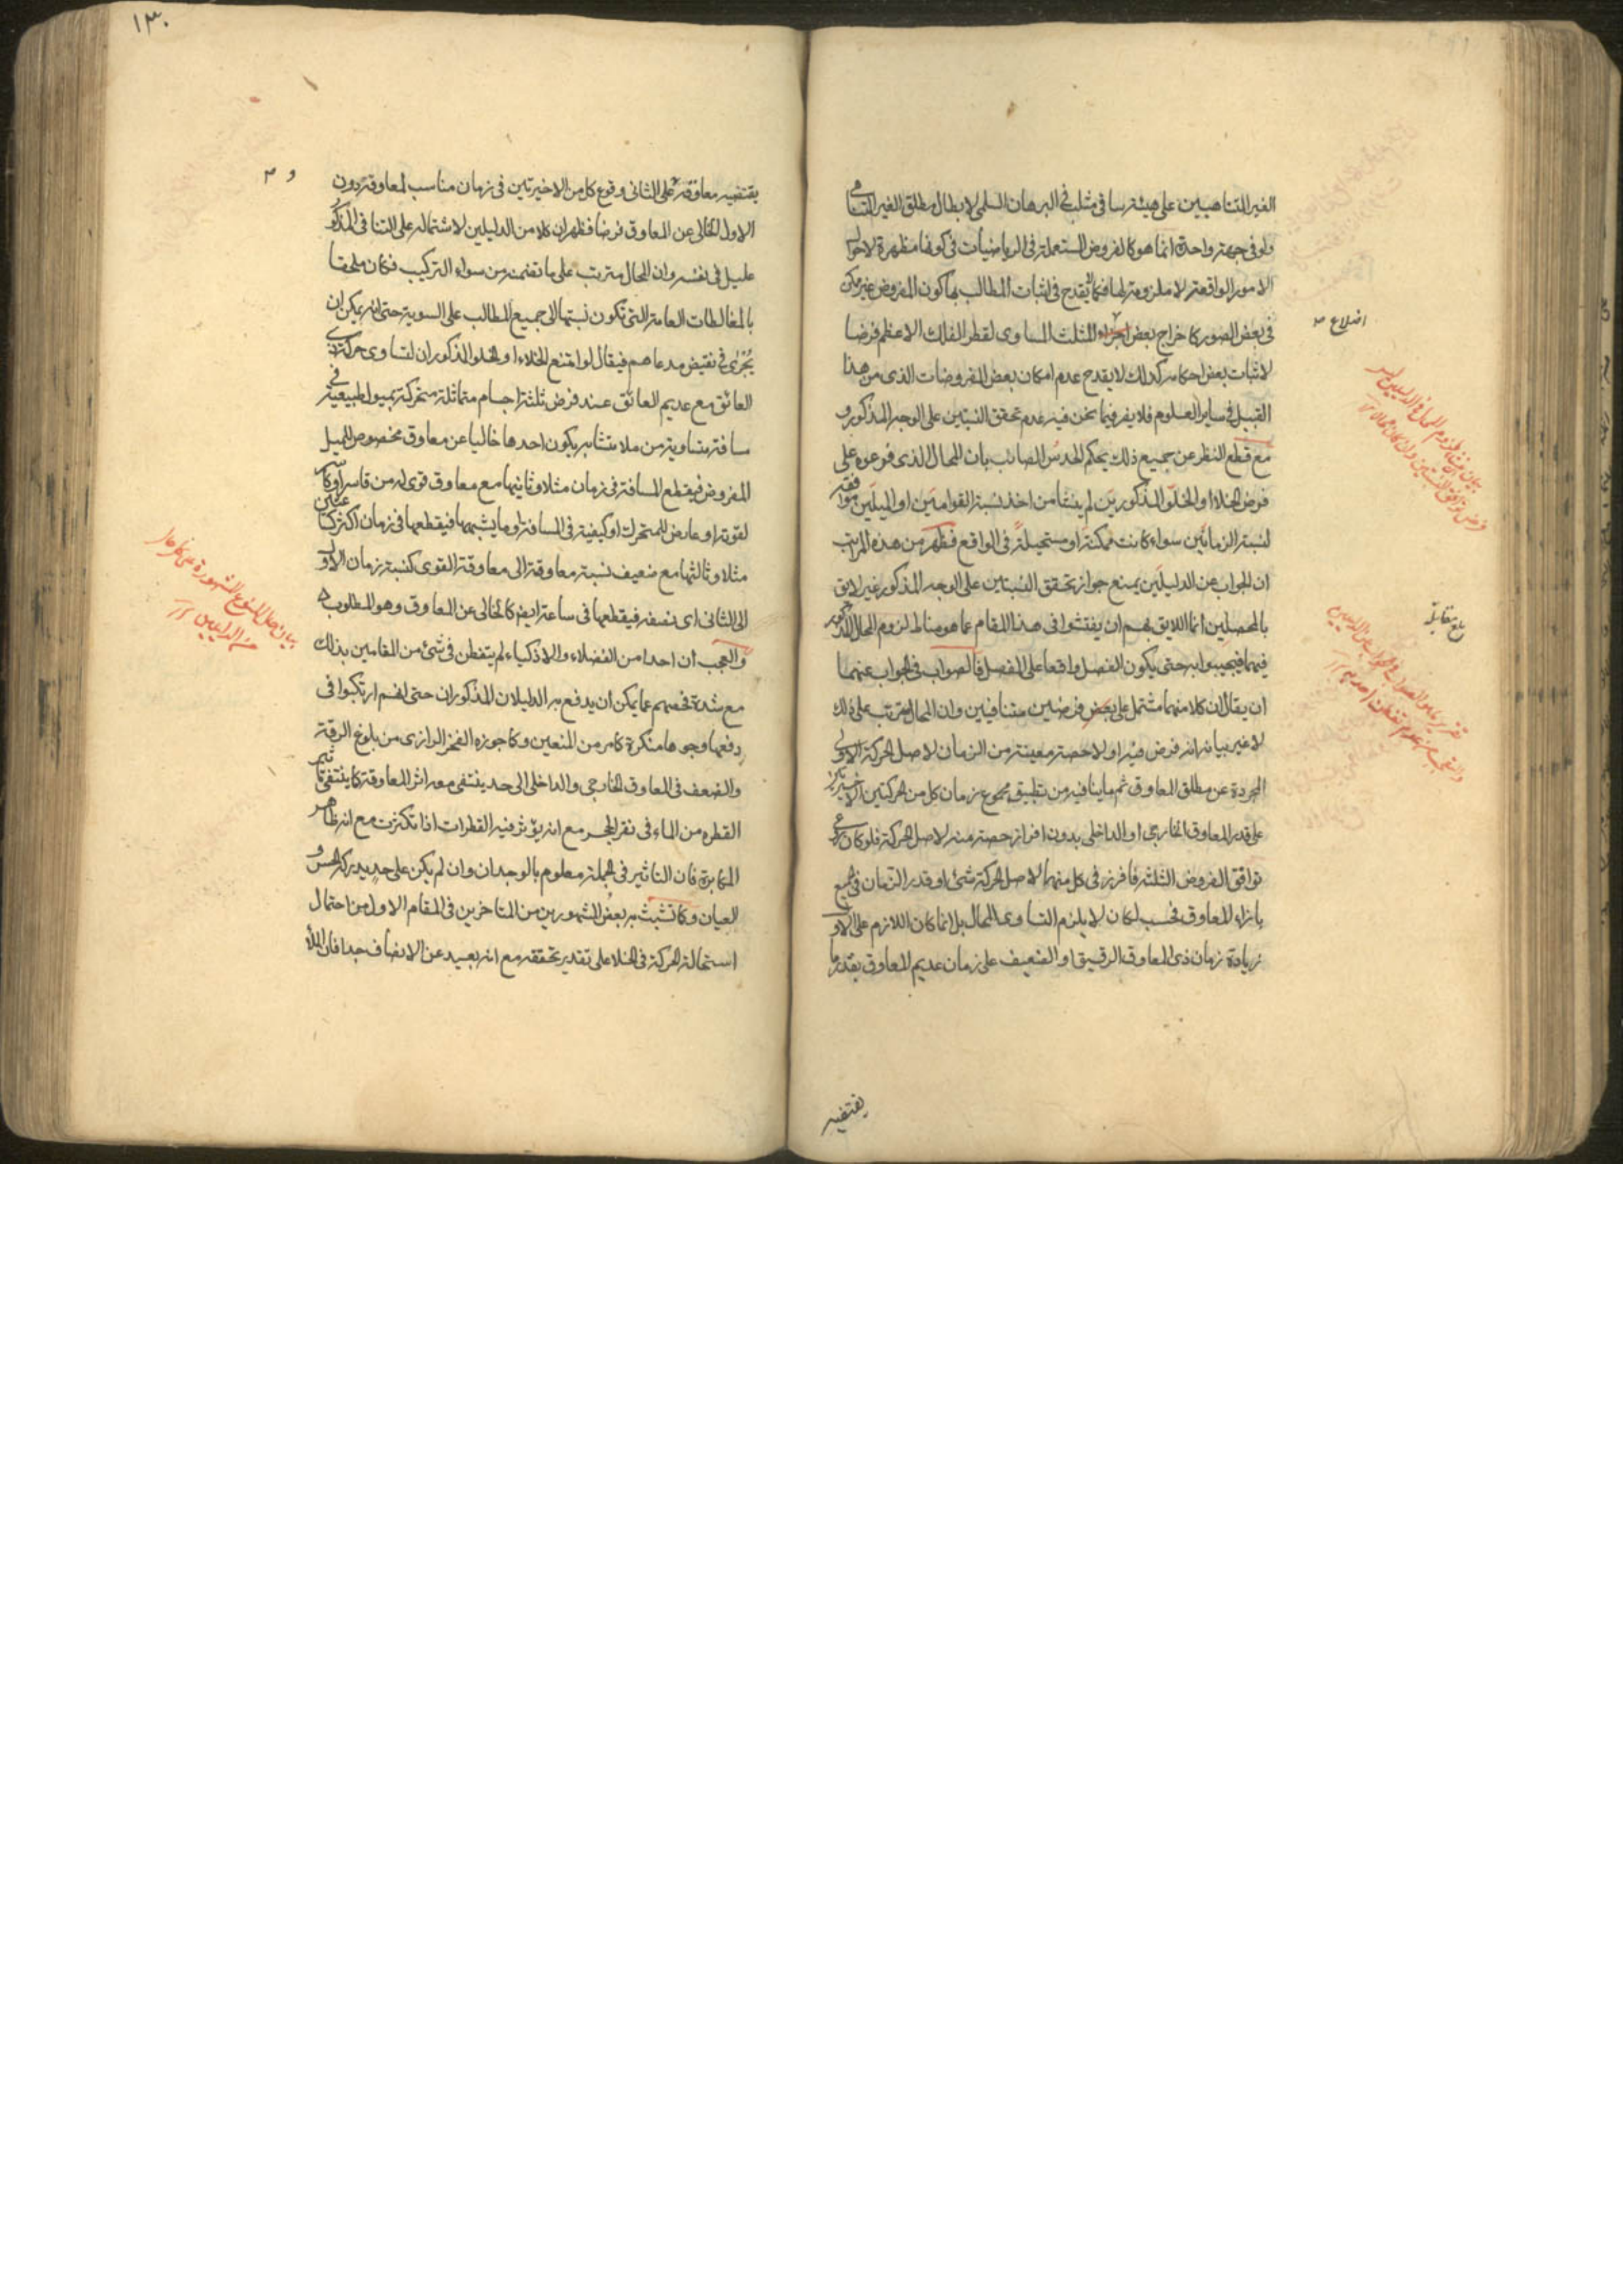 الغير المتناهيين على هيئة ساقى مثلث فى البرهان السلمى لابطال مطلق الغير المتناهى
ولو فى جهة واحدة انما هو كالفروض المستعملة فى الرياضيات فى كونها مظهرة لاحوال
الامور الواقعة لا ملزومة لها فكما لا يقدح فى اثبات المطالب بها كون المفروض غير ممكن
فى بعض الصور كاخراج بعض اجزاء المثلث المساوى لقطر الفلك الاعظم فرضا
اضلاع
لاثبات بعض احكامه كذلك لا يقدح عدم امكان بعض المفروضات الذى من هذا
القبيل فى ساير العلوم فلا يضر فيما نحن فيه عدم تحقق النسبتين على الوجه المذكور و
مع قطع النظر عن جميع ذلك يحكم الحدس الصائب بان المحال الذى فرعوه على
فرض الخلاء او الخلو المذكورين لم ينشأ من اخذ نسبة القوامين او الميلين موافقة
لنسبة الزمانين سواء كانت ممكنة او مستحيلة فى الواقع فظهر من هذه المراتب
ان الجواب عن الدليلين بمنع جواز تحقق النسبتين على الوجه المذكور غير لايق
بالمحصلين انما اللايق بهم ان يفتشوا فى هذا المقام عما هو مناط لزوم المحال المذكور
بلغ مقابلة
فيهما فيجيبوا به حتى يكون الفصل واقعا على المفصل فالصواب فى الجواب عنهما
ان يقال ان كلا منهما مشتمل على فرضين متنافيين وان المحال مترتب على ذلك
لا غير بيانه انه فرض فيه اولا حصة معينة من الزمان لاصل الحركة الاولى
المجردة عن مطلق المعاوق ثم ما ينافيه من تطبيق مجموع زمان كل من الحركتين الاخيرتين
على قدر المعاوق الخارجى او الداخلى بدون افراز حصة منه لاصل الحركة فلو كان
توافق الفروض الثلثة فافرز فى كل منهما لاصل الحركة شئ او قدر الزمان فى الجميع
بازاء المعاوق فحسب لكان لا يلزم التساوى المحال بل انما كان اللازم على الاول
زيادة زمان ذى المعاوق الرقيق او الضعيف على زمان عديم المعاوق بقدر ما
يقتضيه
١٣٠
يقتضيه معاوقه و على الثانى وقوع كل من الاخيرتين فى زمان مناسب لمعاوقه دون
الاول الخالى عن المعاوق فرضا فظهر ان كلا من الدليلين لاشتماله على التنافى المذكور
عليل فى نفسه وان المحال مترتب على ما تضمنه من سواء التركيب فكان ملحقا
بالمغالطات العامة التى تكون نسبتها الى جميع المطالب على السوية حتى انه يمكن ان
يجرى فى نقيض مدعاهم فيقال لو امتنع الخلاء او الخلو المذكوران لتساوى حركة ذى
العائق مع عديم العائق عند فرض ثلثة اجسام متماثلة متحركة بميول طبيعية فى
مسافة متساوية من ملاء متشابه يكون احدها خاليا عن معاوق مخصوص للميل
المفروض فيقطع المسافة فى زمان مثلا وثانيها مع معاوق قوى له من قاسر
لقوته او عارض للمتحرك او كيفية فى المسافة او ما يشبهها فيقطعها فى زمان اكثر كساعتين
مثلا وثالثها مع ضعيف نسبة معاوقته الى معاوقة القوى كنسبة زمان الاول
الى الثانى اى نصفه فيقطعها فى ساعة ايضا كالخالى عن المعاوق وهو المطلوب
والعجب ان احدا من الفضلاء والاذكياء لم يتفطن فى شئ من المقامين بذلك
مع شدة فحصهم عما يمكن ان يدفع به الدليلان المذكوران حتى انهم ارتكبوا فى
دفعها وجوها منكرة كما مر من المنعين وكما جوزه الفخر الرازى من بلوغ الرقة
والضعف فى المعاوق الخارجى والداخلى الى حد ينتفى معه اثر المعاوقة كما ينتفى تاثير
القطره من الماء فى نقر الحجر مع انه يؤثر فيه القطرات اذا تكثرت مع انه ظاهر
المكابرة فان التاثير فى الجملة معلوم بالوجدان وان لم يكن على حد يدركه الحس و
العيان وكما تشبث به بعض المشهورين من المتاخرين فى المقام الاول من احتمال
استحالة الحركة فى الخلا على تقدير تحققه مع انه بعيد عن الانصاف جدا فان الملأ